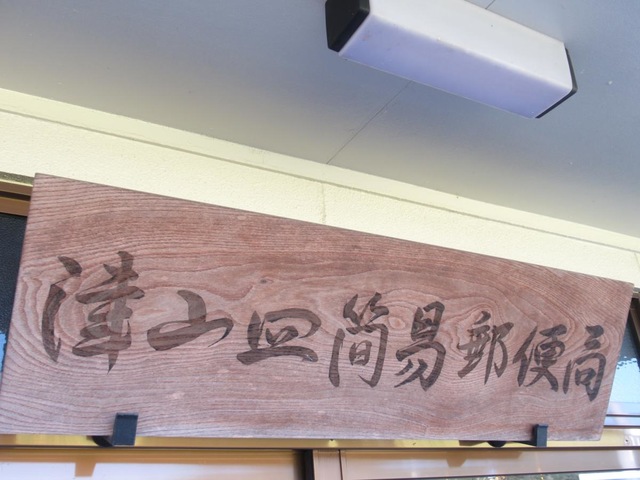 津山皿簡易郵便局